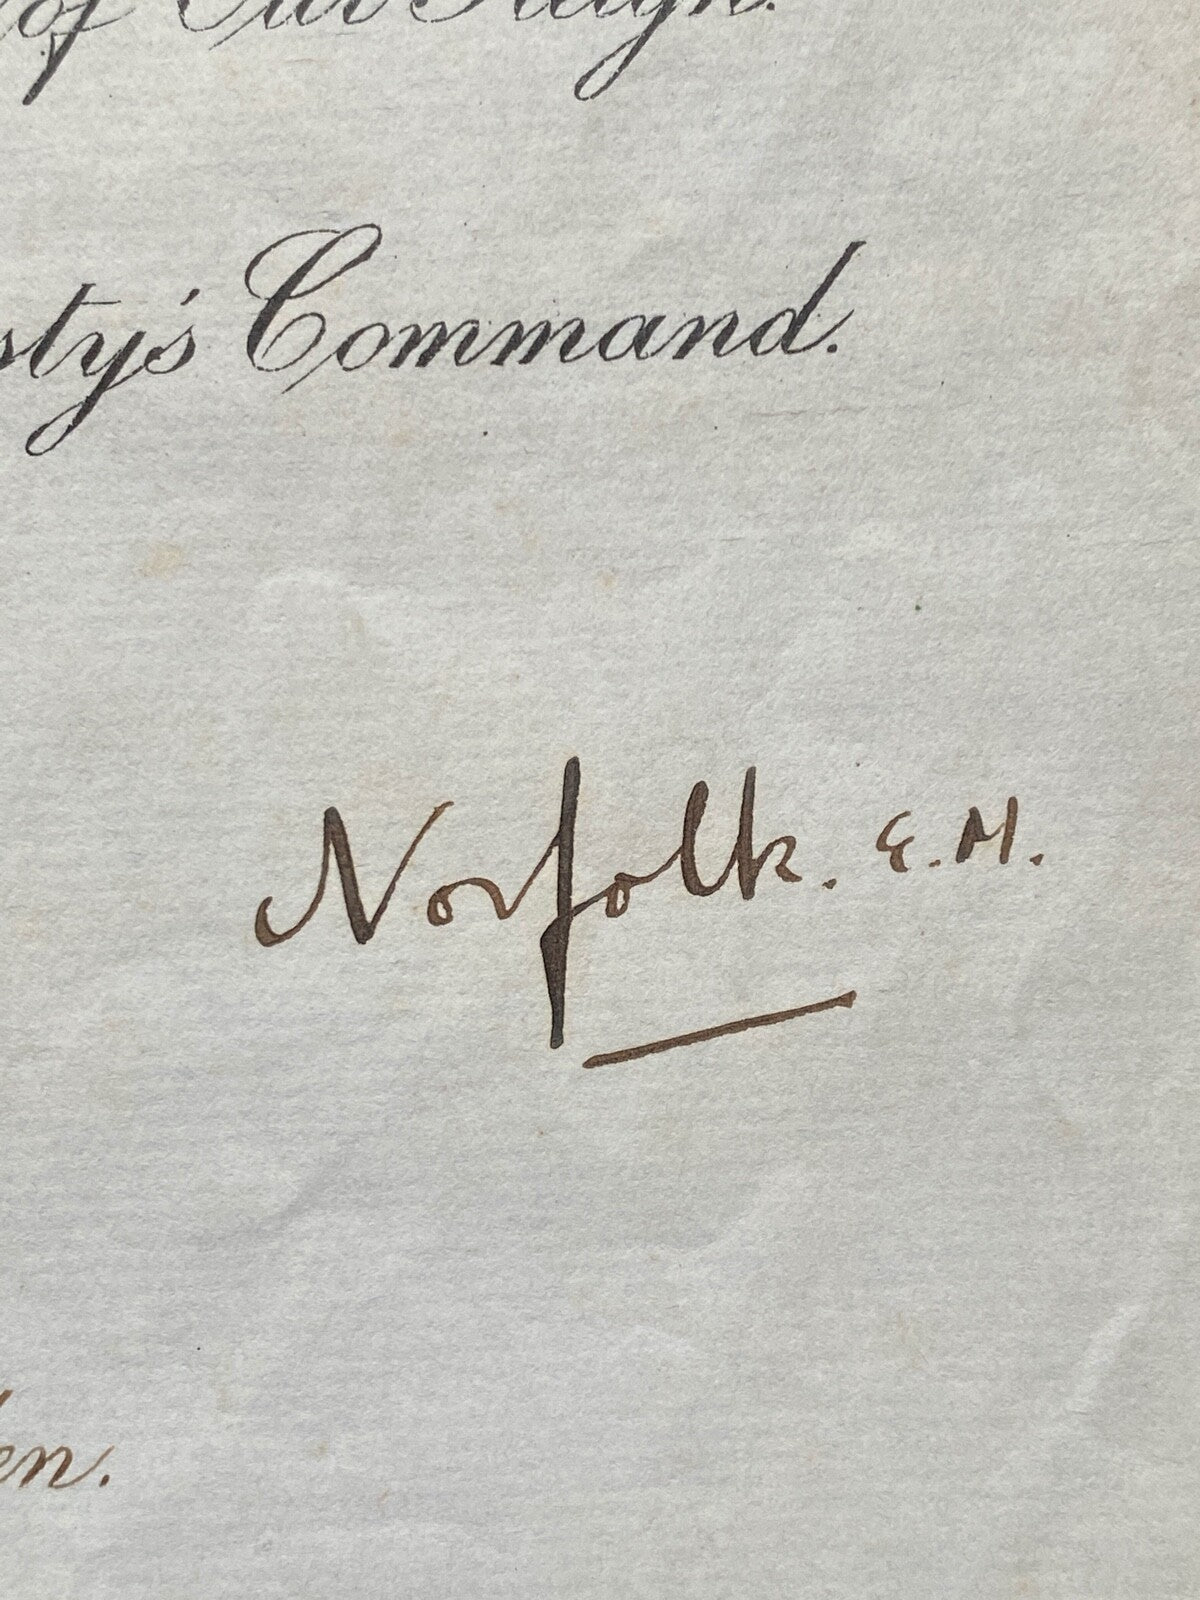 of Our Reign.
sty's Command.
Norfolk. E.M.
en.